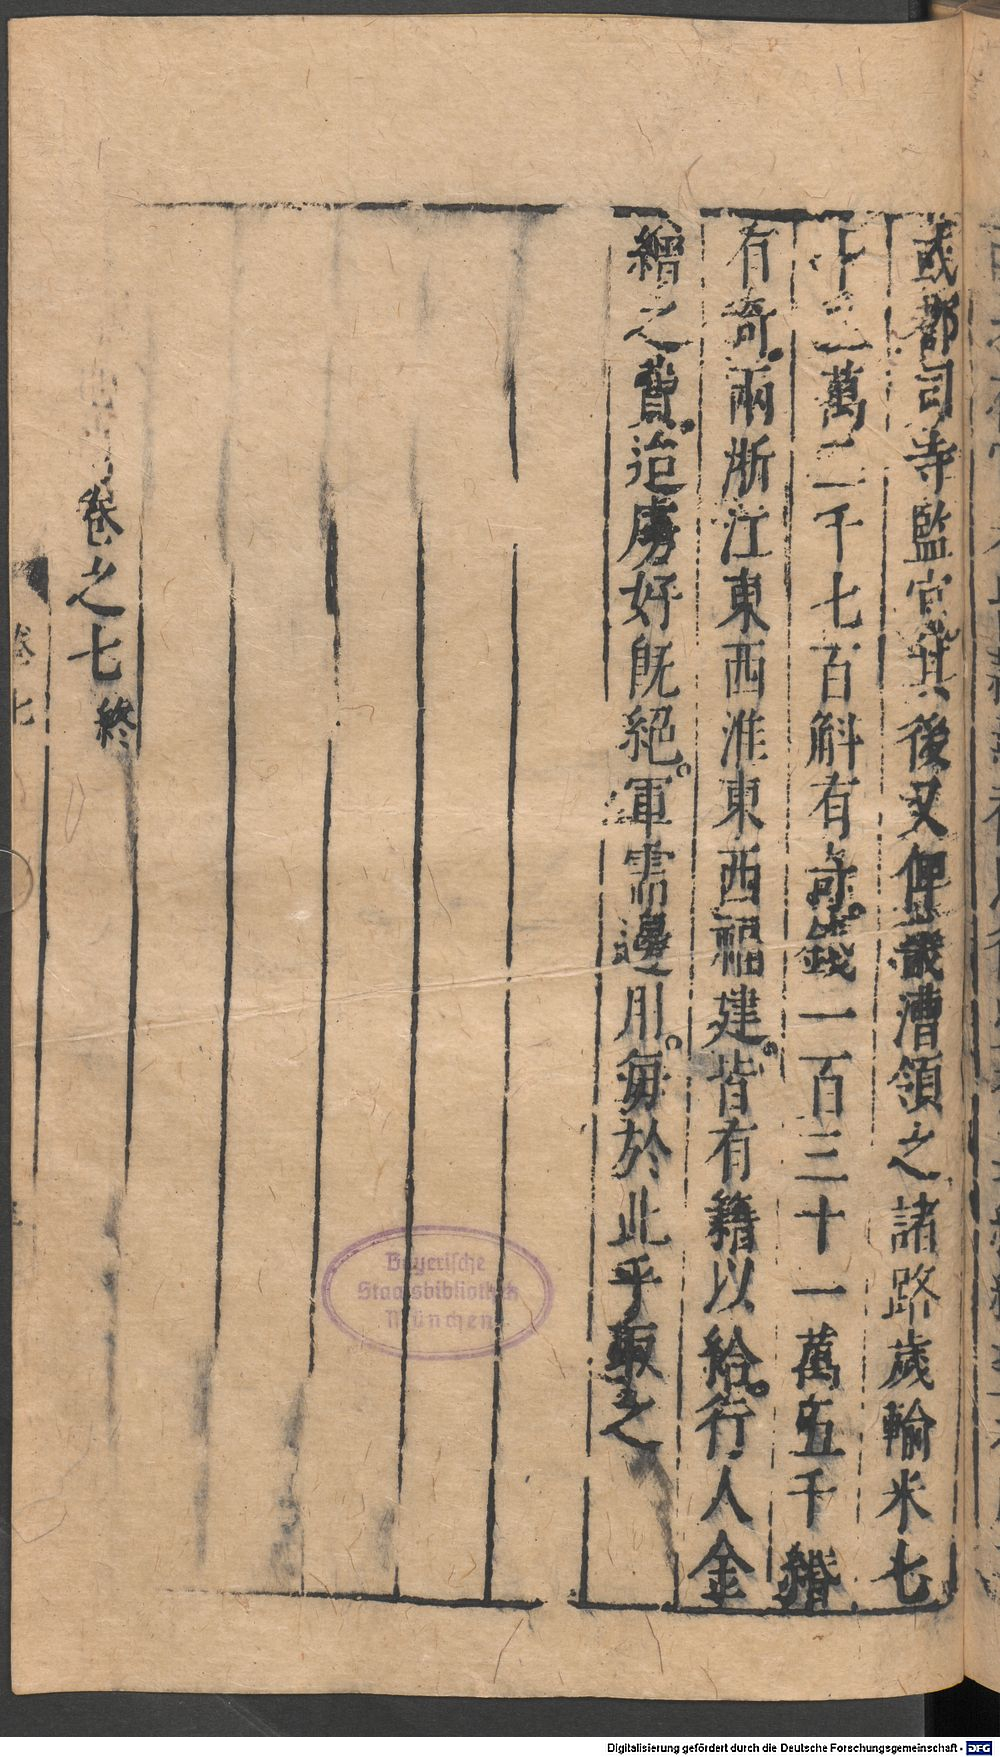 或都司寺監官其後又俾戚漕領之諸路歲輸米七
十二萬二千七百斛有奇錢一百三十一萬五千緡
有奇兩浙江東西淮東西福建皆有籍以給行人金
繒之費迨虜好既絕軍需邊用每於此乎取之
卷之七終
卷七
Bayerische
Staatsbibliothek
München
Digitalisierung gefördert durch die Deutsche Forschungsgemeinschaft - DFG